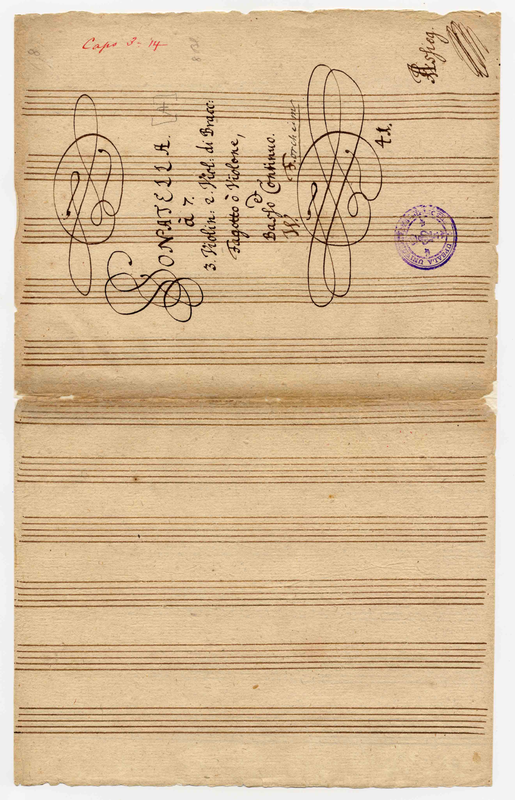 Caps 3-14
8
[A]
SONATELLA.
à 7.
3. Violin: 2. Viol: di Bracc:
Fagotto ò Violone,
et
Basso Continuo.
41.
UPSALA UNIV